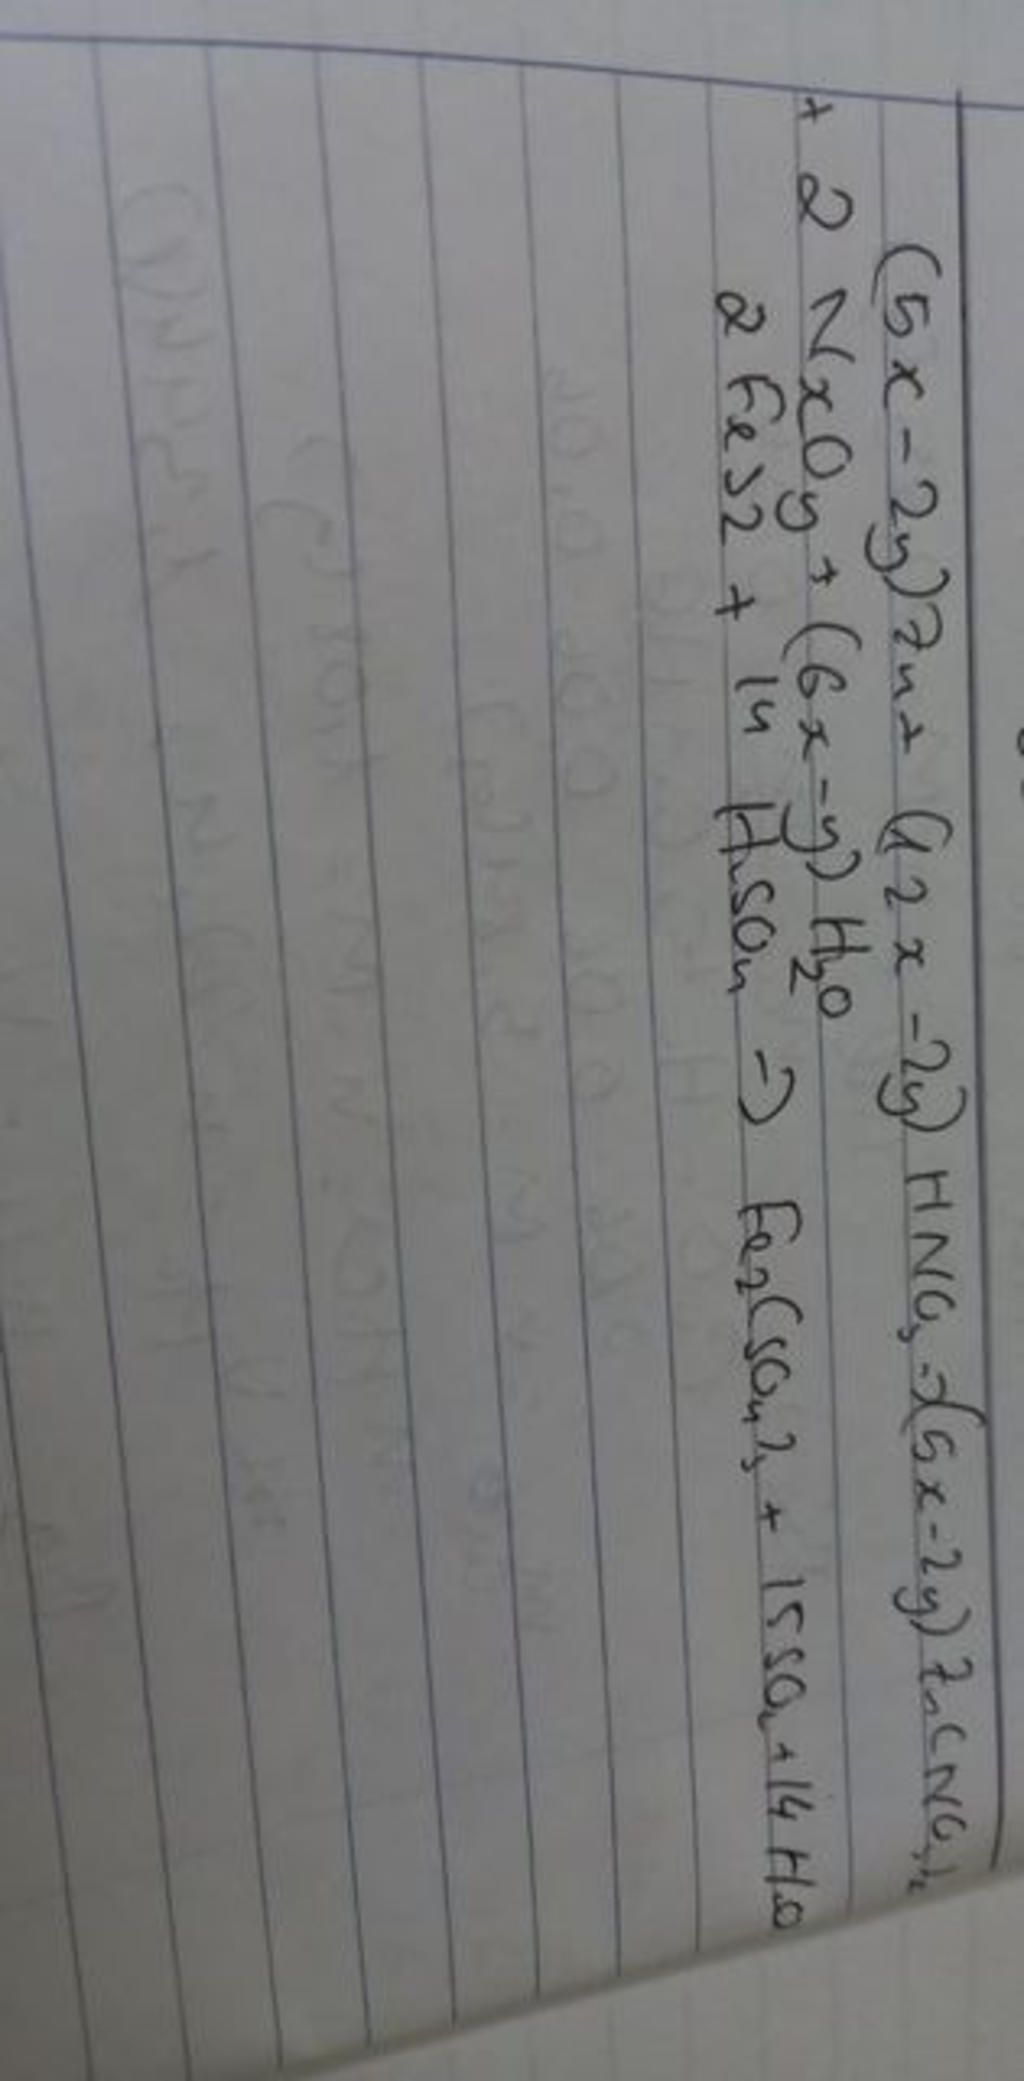 (5x-2y)Zn+ (12x-2y) HNO3 →(5x-2y) Zn(NO3)2
+ 2 NxOy + (6x-y) H2O
2 FeS2 + 14 H2SO4 → Fe2(SO4)3 + 15SO2 + 14 H2O